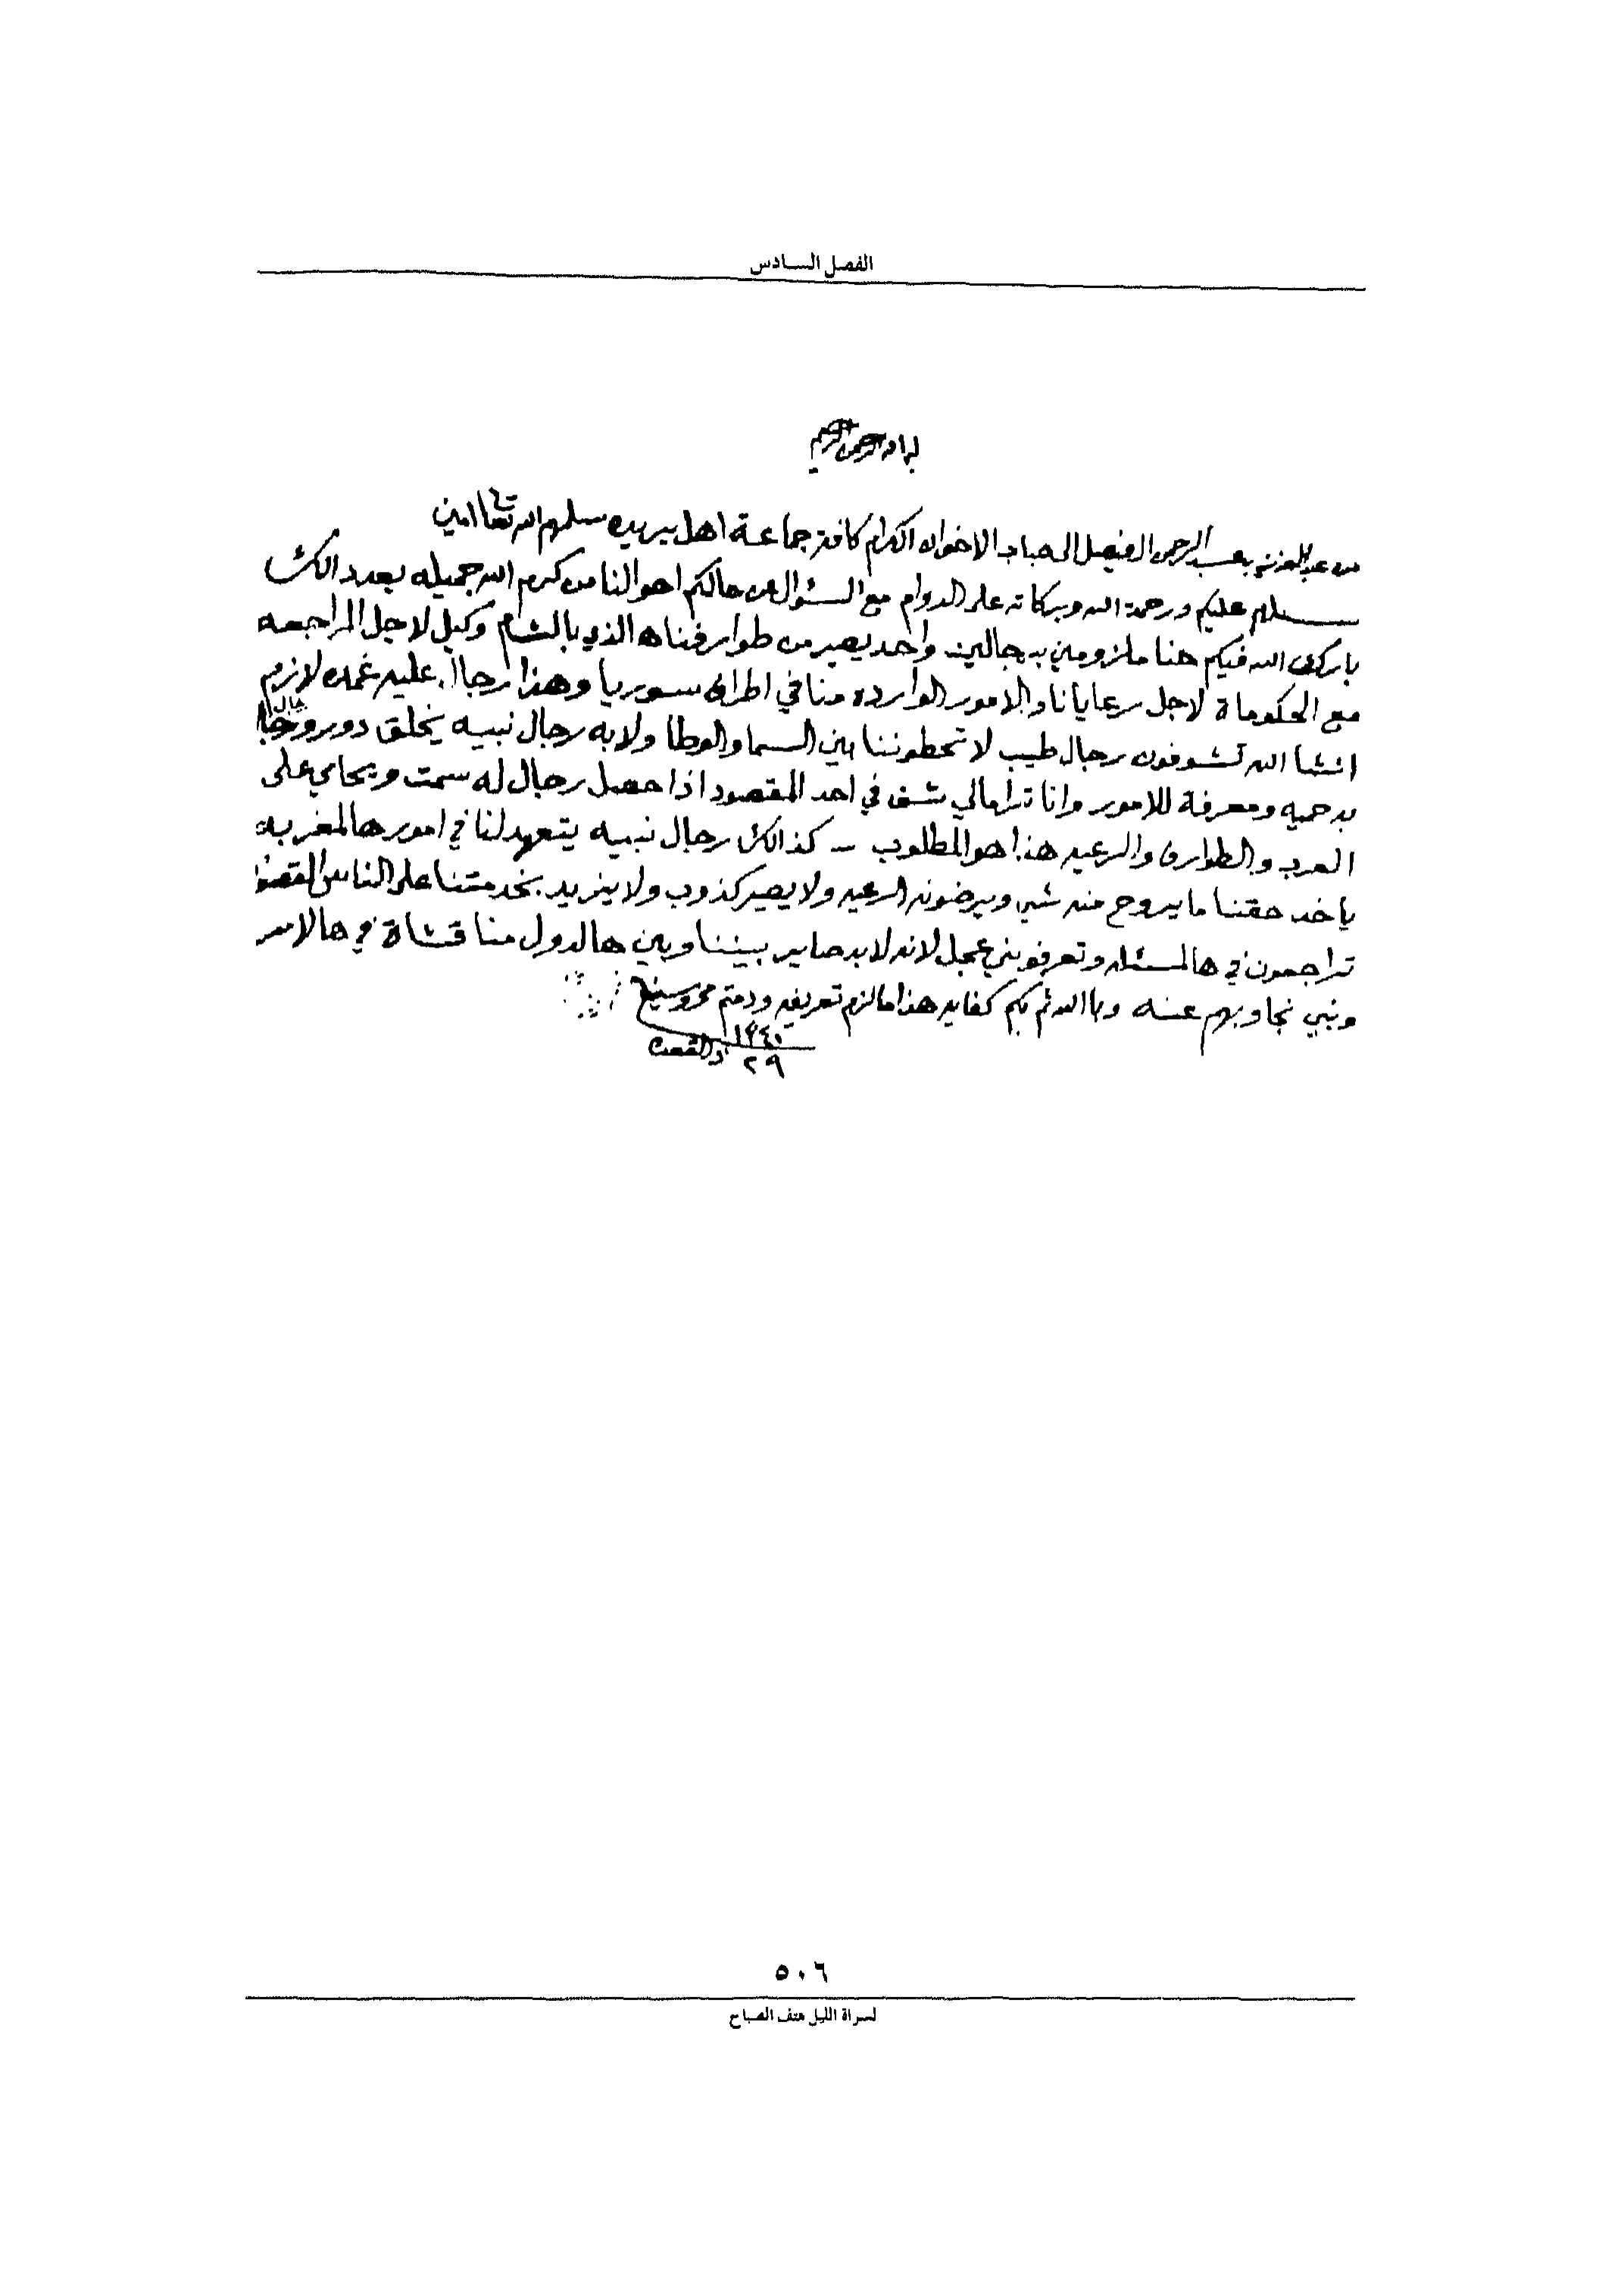 الفصل السادس
بسم الله الرحمن الرحيم
من عبد العزيز بن عبد الرحمن الفيصل الى جناب الاخوان الكرام كافة جماعة اهل بريده سلمهم الله تعالى امين
سلام عليكم ورحمة الله وبركاته على الدوام مع السئوال عن حالكم احوالنا من كرم الله جميله بعدد الكم
بارك الله فيكم حنا ملزومين به رجالين واحد يصير من طوارفناه الذي بالشام وكيل لاجل المراجعه
مع الحكوماة لاجل رعايانا والامور الوارده منا في اطراف سوريا وهذا رجال عليه عمده لازم
انشا الله تشوفون رجال طيب لا تحطوننا بين السما والوطا ولا به رجال نبيه يخلق دوروا رجال
به حميه ومعرفة للامور وانا ترا مالي شف في احد المقصود اذا حصل رجال له سمت ويحامي على
العرب والطوارف والرعيه هذا هو المطلوب - كذالك رجال نبيه يتعهد لنا في امور هالمغربه
ياخد حقنا ما يروح منه شي ويرضونه الرعيه ولا يصير كذوب ولا يزيد بخدمتنا على الناس المقصود
تراجعون في هالمسئله وتعرفوني عجل لانه لابد صاير بيننا وبين هالدول مناقشاة في هالامر
ونبي نجاوبهم عنه وبالله ثم بكم كفايه هذا ما لزم تعريفه ودمتم محروسين
١٣٤٠
٢٩ ذالقعدة
٥٠٦
لسراة الليل هتف الصباح